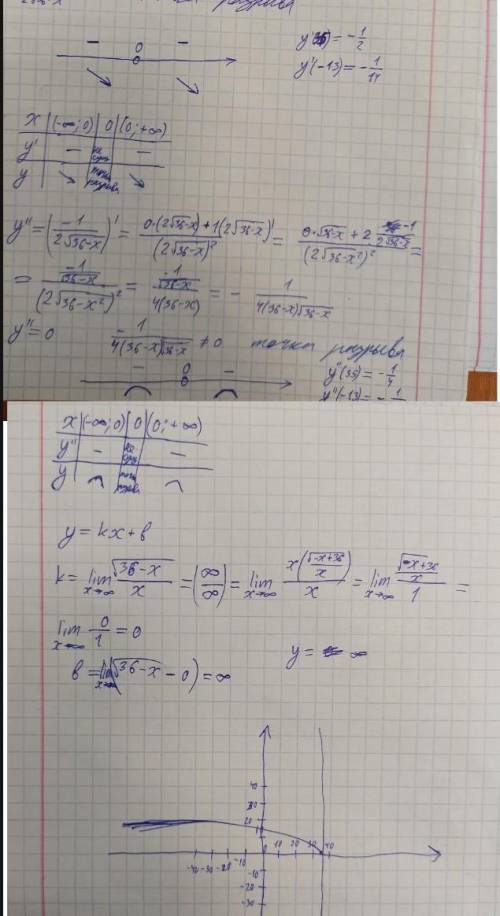 разрыва
− 0 −
y'(35) = -1/2
y'(-13) = -1/14
x | (-∞; 0) | 0 | (0; +∞)
y' | − | не сущ | −
y | ↘ | точка разрыва | ↘
y'' = (-1/(2√36-x))' = (0·(2√36-x)+1(2√36-x)')/(2√36-x)² = (0·√36-x + 2 · -1/(2√36-x))/(2√36-x²)² =
= (-1/√36-x)/(2√36-x²)² = (-1/√36-x)/(4(36-x)) = - 1/(4(36-x)√36-x)
y''=0 - 1/(4(36-x)√36-x) ≠ 0 точка разрыва
− 0 −
y''(35) = -1/4
y''(-13) = -1
x | (-∞; 0) | 0 | (0; +∞)
y'' | − | не сущ | −
y | ⌢ | точка разрыва | ⌢
y = kx + b
k = lim x→∞ √36-x/x = (∞/∞) = lim x→∞ x(√-x+36/x)/x = lim x→∞ (√-x+36/x)/1 =
lim x→∞ 0/1 = 0
b = lim x→∞ (√36-x - 0) = ∞
y = ∞
40
30
20
10
-40 -30 -20 -10 0 10 20 30 40
-10
-20
-30